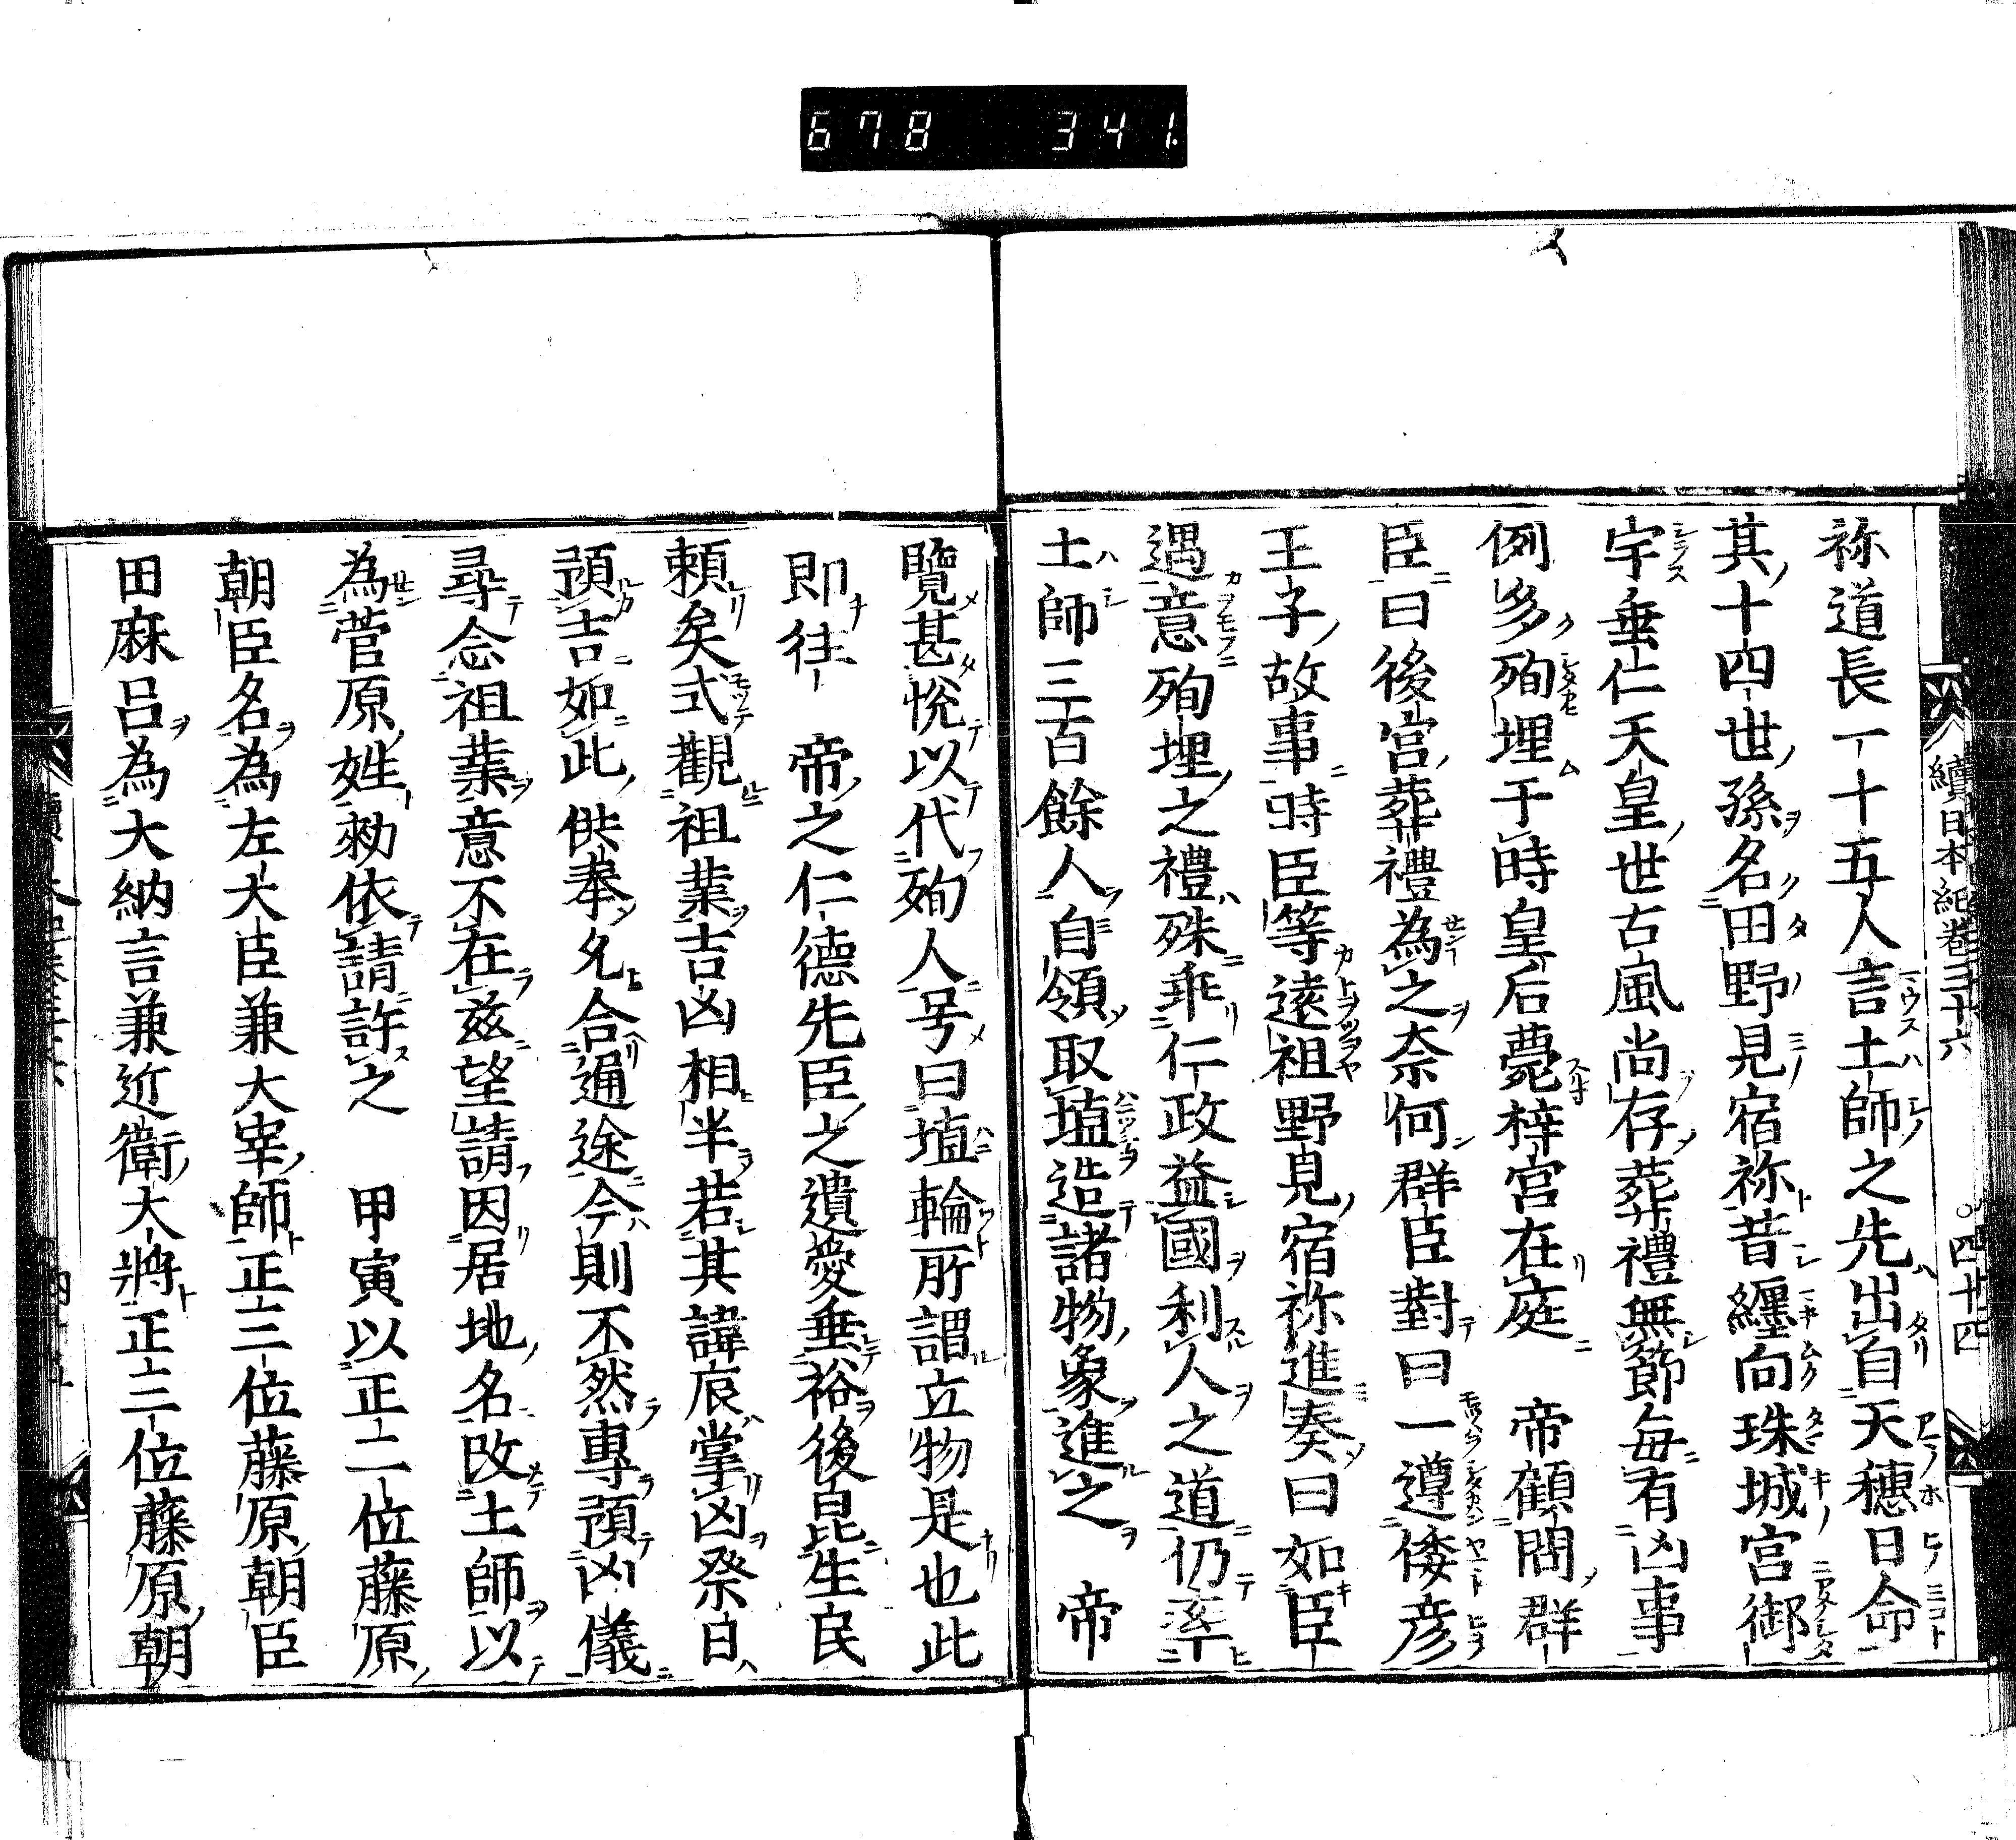 678 341.
續日本紀卷三十六 ○四十四
祢道長一十五人言土師之先出自天穗日命
其十四世孫名田野見宿祢昔纏向珠城宮御
宇垂仁天皇世古風尚存葬禮無節每有凶事
例多殉埋于時皇后薨梓宮在庭 帝顧問群
臣曰後宮葬禮為之奈何群臣對曰一遵倭彥
王子故事時臣等遠祖野見宿祢進奏曰如臣
遇意殉埋之禮殊乖仁政益國利人之道仍率
土師三百餘人自領取埴造諸物象進之 帝
覽甚悅以代殉人号曰埴輪所謂立物是也此
即往 帝之仁德先臣之遺愛垂裕後昆生民
頼矣式觀祖業吉凶相半若其諱辰掌凶祭日
預吉如此供奉允合通途今則不然專預凶儀
尋念祖業意不在茲望請因居地名改土師以
為菅原姓勑依請許之 甲寅以正二位藤原
朝臣名為左大臣兼大宰師正三位藤原朝臣
田麻呂為大納言兼近衛大將正三位藤原朝